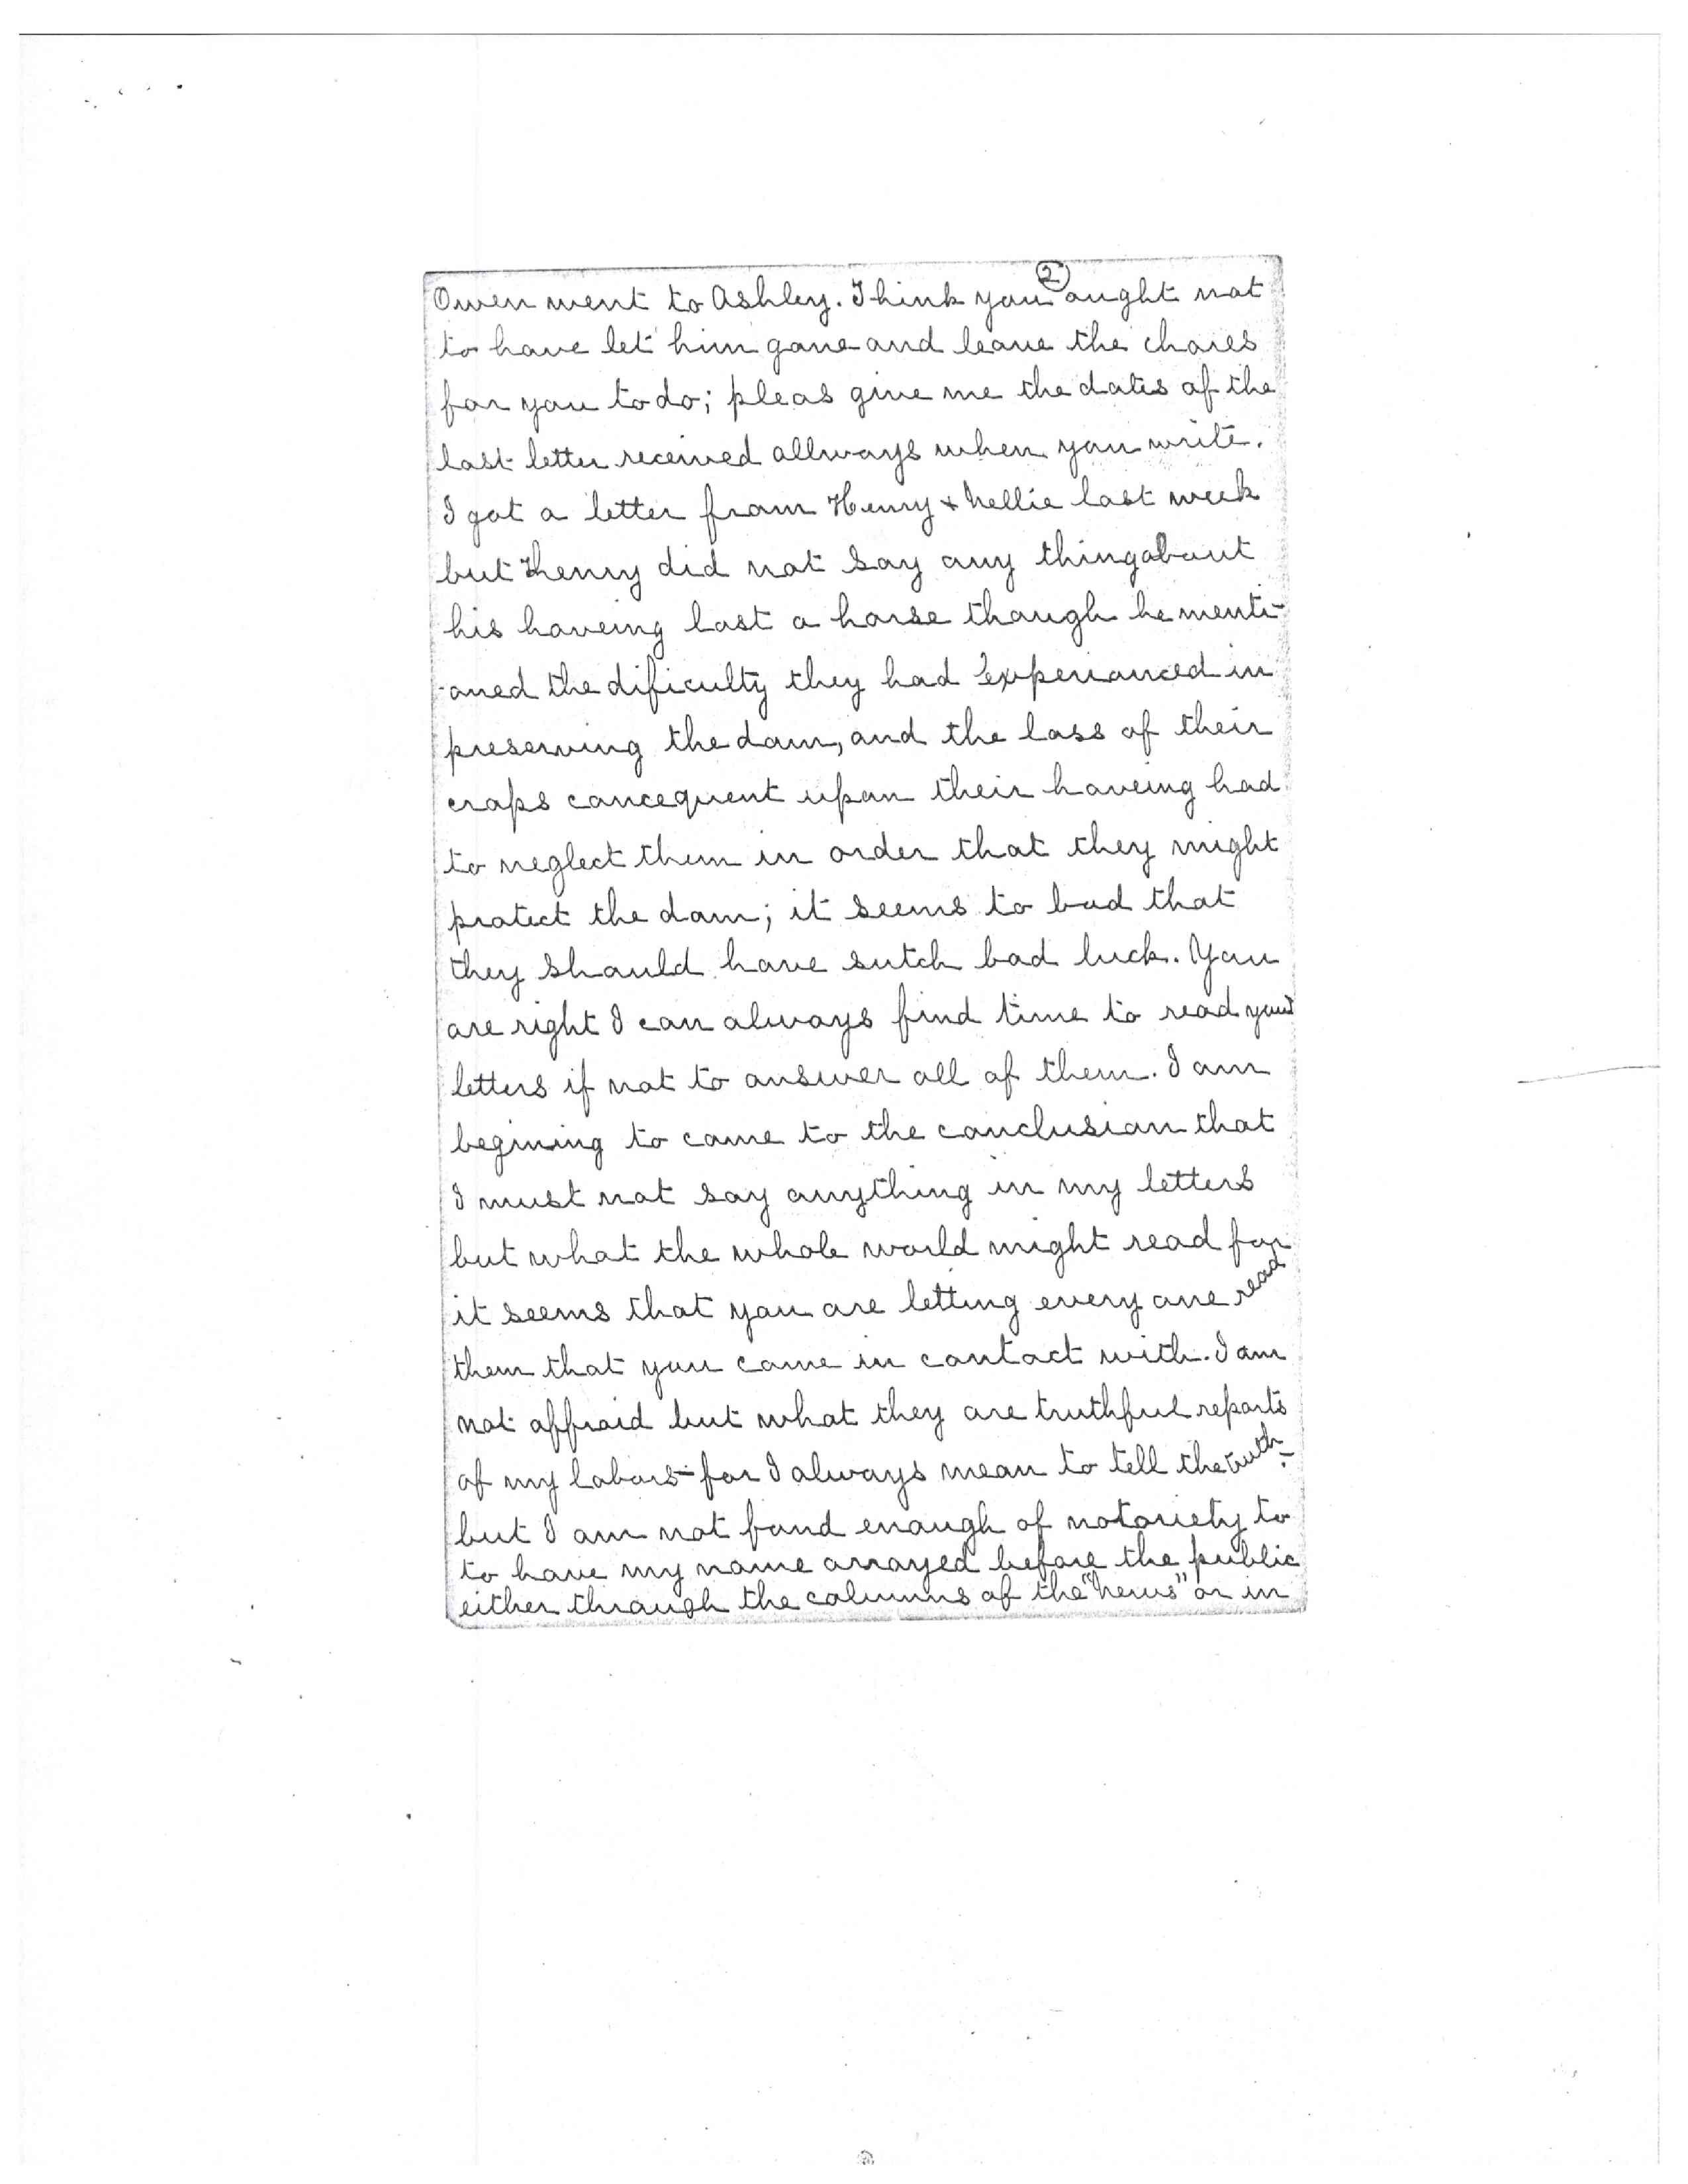 ②
Owen went to Ashley. I hink you ought not
to have let him gone and leave the chores
for you to do; pleas give me the dates of the
last letter received allways when you write.
I got a letter from Henry & Nellie last week
but Henry did not say any thing about
his haveing lost a horse though he menti-
-oned the dificulty they had experianced in
preserving the dam, and the loss of their
crops concequent upon their haveing had
to neglect them in order that they might
protect the dam; it seems to bad that
they should have sutch bad luck. You
are right I can always find time to read your
letters if not to answer all of them. I am
begining to come to the conclusion that
I must not say anything in my letters
but what the whole world might read for
it seems that you are letting every one read
them that you come in contact with. I am
not affraid but what they are truthful reports
of my labors - for I always mean to tell the truth -
but I am not fond enough of notoriety to
to have my name arrayed before the public
either through the columns of the "News" or in